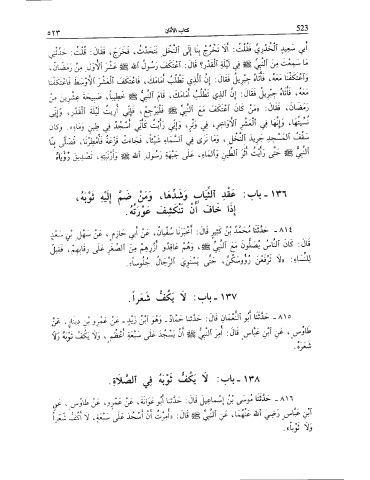 523 كتاب الأذان ٥٢٣
أبي سعيد الخدري فقلت: ألا تخرج بنا إلى النخل نتحدث، فخرج، فقال: قلت: حدثني
ما سمعت من النبي ﷺ في ليلة القدر؟ قال: اعتكف رسول الله ﷺ عشر الأول من رمضان،
واعتكفنا معه، فأتاه جبريل فقال: إن الذي تطلب أمامك، فاعتكف العشر الأوسط فاعتكفنا
معه، فأتاه جبريل فقال: إن الذي تطلب أمامك، قام النبي ﷺ خطيباً، صبيحة عشرين من
رمضان، فقال: «من كان اعتكف مع النبي ﷺ فليرجع، فإني أريت ليلة القدر، وإني
نسيتها، وإنها في العشر الأواخر، في وتر، وإني رأيت كأني أسجد في طين وماء». وكان
سقف المسجد جريد النخل، وما نرى في السماء شيئاً، فجاءت قزعة فأمطرنا، فصلى بنا
النبي ﷺ حتى رأيت أثر الطين والماء، على جبهة رسول الله ﷺ وأرنبته، تصديق رؤياه
١٣٦ - باب: عقد الثياب وشدها، ومن ضم إليه ثوبه،
إذا خاف أن تنكشف عورته.
٨١٤ - حدثنا محمد بن كثير قال: أخبرنا سفيان، عن أبي حازم، عن سهل بن سعد
قال: كان الناس يصلون مع النبي ﷺ، وهم عاقدو أزرهم من الصغر على رقابهم، فقيل
للنساء: «لا ترفعن رؤوسكن، حتى يستوي الرجال جلوساً».
١٣٧ - باب: لا يكف شعراً.
٨١٥ - حدثنا أبو النعمان قال: حدثنا حماد، وهو ابن زيد، عن عمرو بن دينار، عن
طاوس، عن ابن عباس قال: أمر النبي ﷺ أن يسجد على سبعة أعظم، ولا يكف ثوبه ولا
شعره.
١٣٨ - باب: لا يكف ثوبه في الصلاة.
٨١٦ - حدثنا موسى بن إسماعيل قال: حدثنا أبو عوانة، عن عمرو، عن طاوس، عن
ابن عباس رضي الله عنهما، عن النبي ﷺ قال: «أمرت أن أسجد على سبعة، لا أكف شعراً
ولا ثوباً».